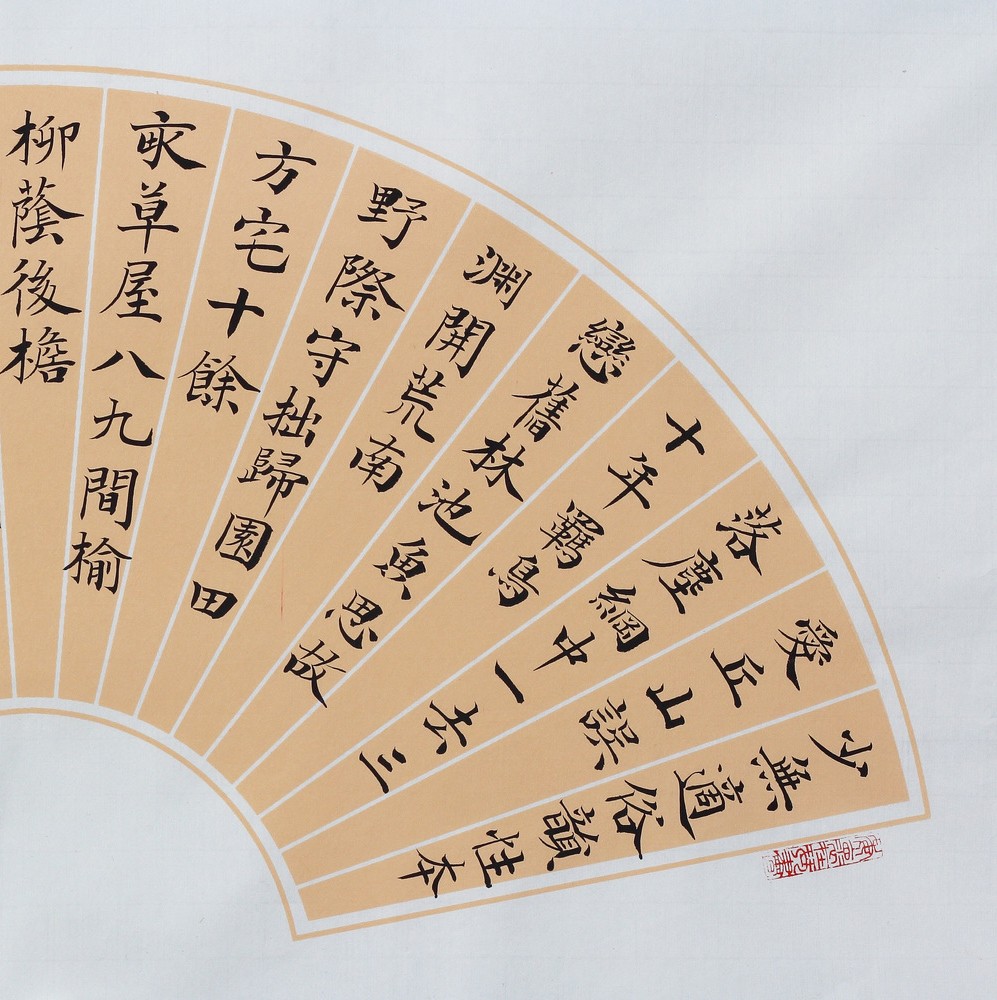 少無適俗韻性本
愛丘山誤
落塵網中一去三
十年羈鳥
戀舊林池魚思故
淵開荒南
野際守拙歸園田
方宅十餘
畝草屋八九間榆
柳蔭後檐